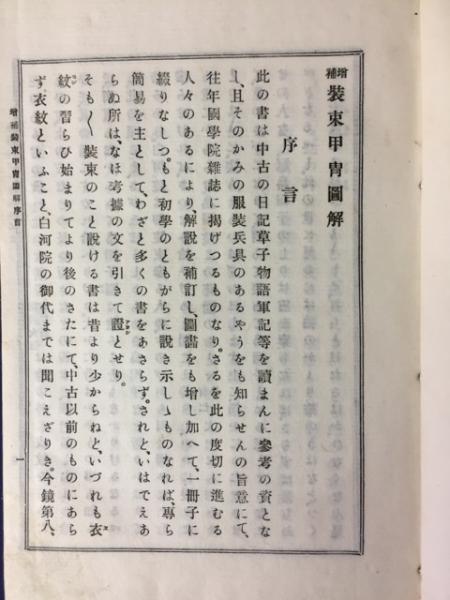 增補裝束甲冑圖解
序言
此の書は中古の日記草子物語軍記等を讀まんに參考の資とな
し、且そのかみの服裝兵具のあるやうをも知らせんの旨意にて、
往年國學院雜誌に揭げつるものなり。さるを此の度切に進むる
人々のあるにより、解說を補訂し、圖畵をも增し加へて、一冊子に
綴りなしつ。もと初學のともがらに說き示しゝものなれば、專ら
簡易を主として、わざと多くの書をあさらず。されと、いはでえあ
らぬ所は、なほ考據の文を引きて證とせり。
そも〳〵裝束のこと說ける書は昔より少からねと、いづれも衣
紋の習らひ始まりてより後のさたにて、中古以前のものにあら
ず衣紋といふこと、白河院の御代までは聞こえざりき。今鏡第八、
增補裝束甲冑圖解序言
一